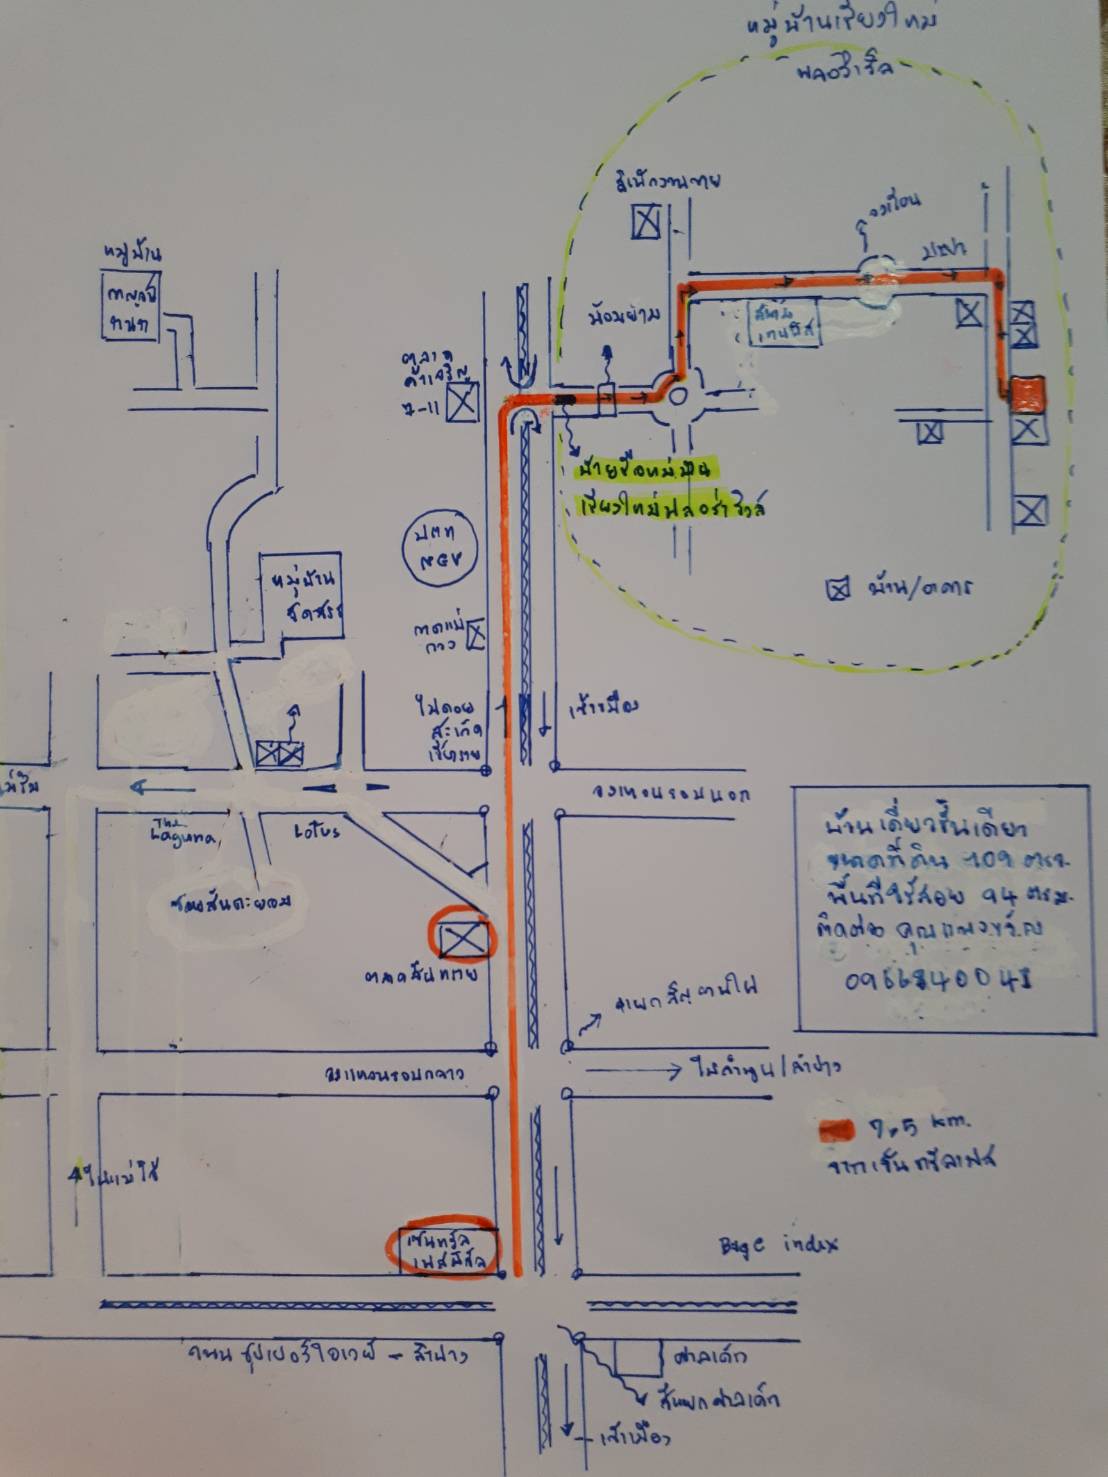 หมู่บ้านเชียงใหม่
สำนักงานขาย
วงเวียน
หมู่บ้าน
ป้อมยาม
สนาม
เทนนิส
ตลาด
คำเจริญ
7-11
ป้ายชื่อหมู่บ้าน
เชียงใหม่ฟลอร่าวิลล์
ปตท
NGV
หมู่บ้าน
จัดสรร
บ้าน/อาคาร
กาดแม่
กวง
ไปดอย
สะเก็ด
เชียงราย
เข้าเมือง
วงแหวนรอบนอก
The
Laguna
Lotus
บ้านเดี่ยวชั้นเดียว
ขนาดที่ดิน 109 ตรว.
พื้นที่ใช้สอย 94 ตรม.
ติดต่อ คุณ
ตลาดสันทราย
วงแหวนรอบกลาง
ไปลำพูน/ลำปาง
7.5 km.
จากเซ็นทรัลเฟส
ไปแม่โจ้
เซนทรัล
เฟสติวัล
Bage index
ถนน ซุปเปอร์ไฮเวย์ - ลำปาง
ศาลเด็ก
สี่แยกศาลเด็ก
เข้าเมือง